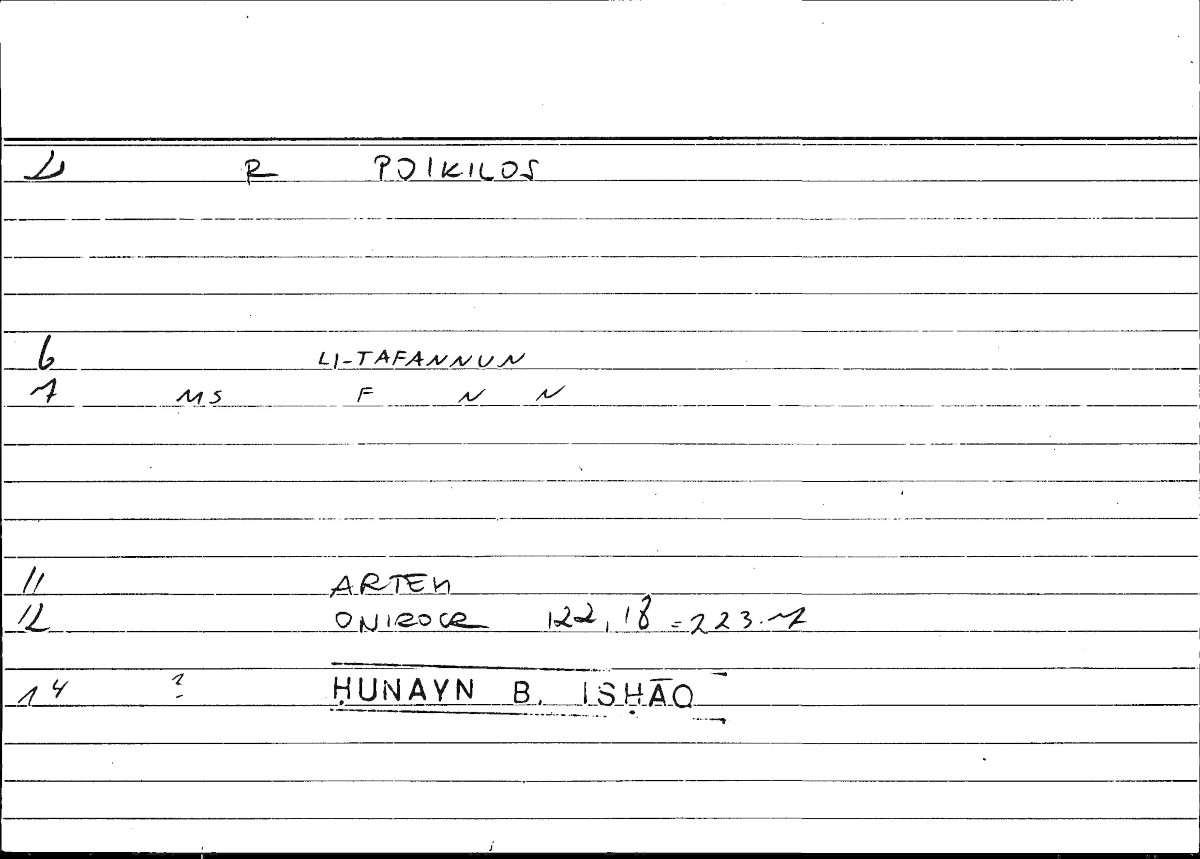 1 R POIKILOS
6 LI-TAFANNUN
7 MS F N N
11 ARTEM
12 ONIROCR 122,18 = 223.7
14 ? ḤUNAYN B. ISḤĀQ